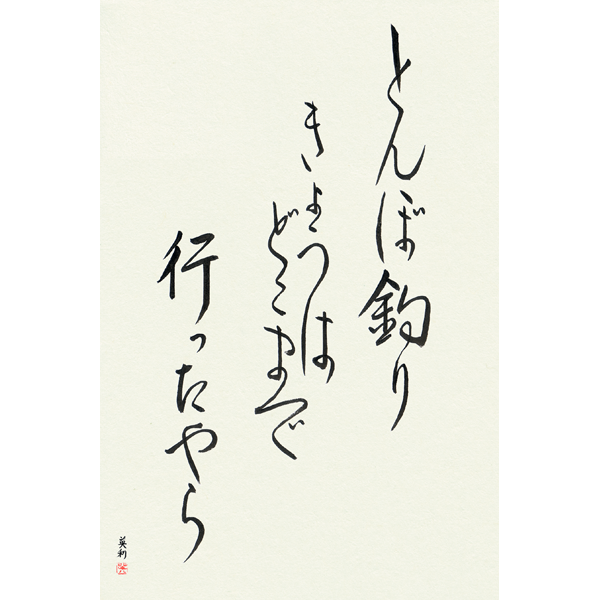 とんぼ釣り
きょうは
どこまで
行ったやら
英利